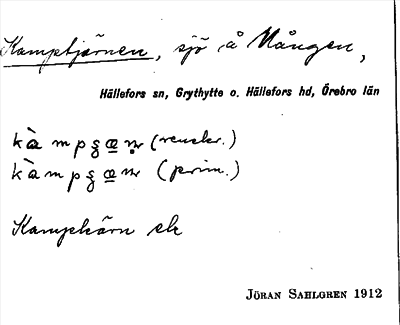 Kamptjärnen, sjö å Mången,
Hällefors sn, Grythytte o. Hällefors hd, Örebro län
(renskr.)
(prim.)
Kampkärn ek
JÖRAN SAHLGREN 1912